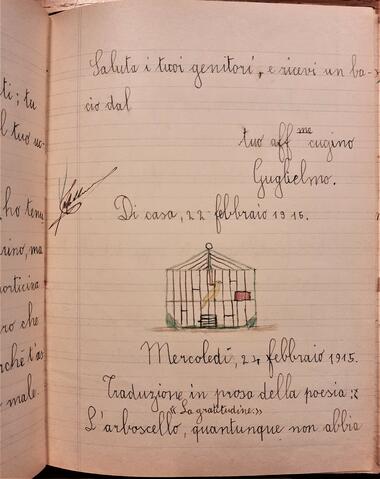 ti; tu
l tuo uc-
ho tenu
rino, ma
porticina
ro che
rchè t'as
male.
Saluta i tuoi genitori, e ricevi un ba-
cio dal
tuo aff.me cugino
Guglielmo.
Di casa, 22 febbraio 1915.
Mercoledì, 24 febbraio 1915.
Traduzione in prosa della poesia:
«La gratitudine:»
L'arboscello, quantunque non abbia